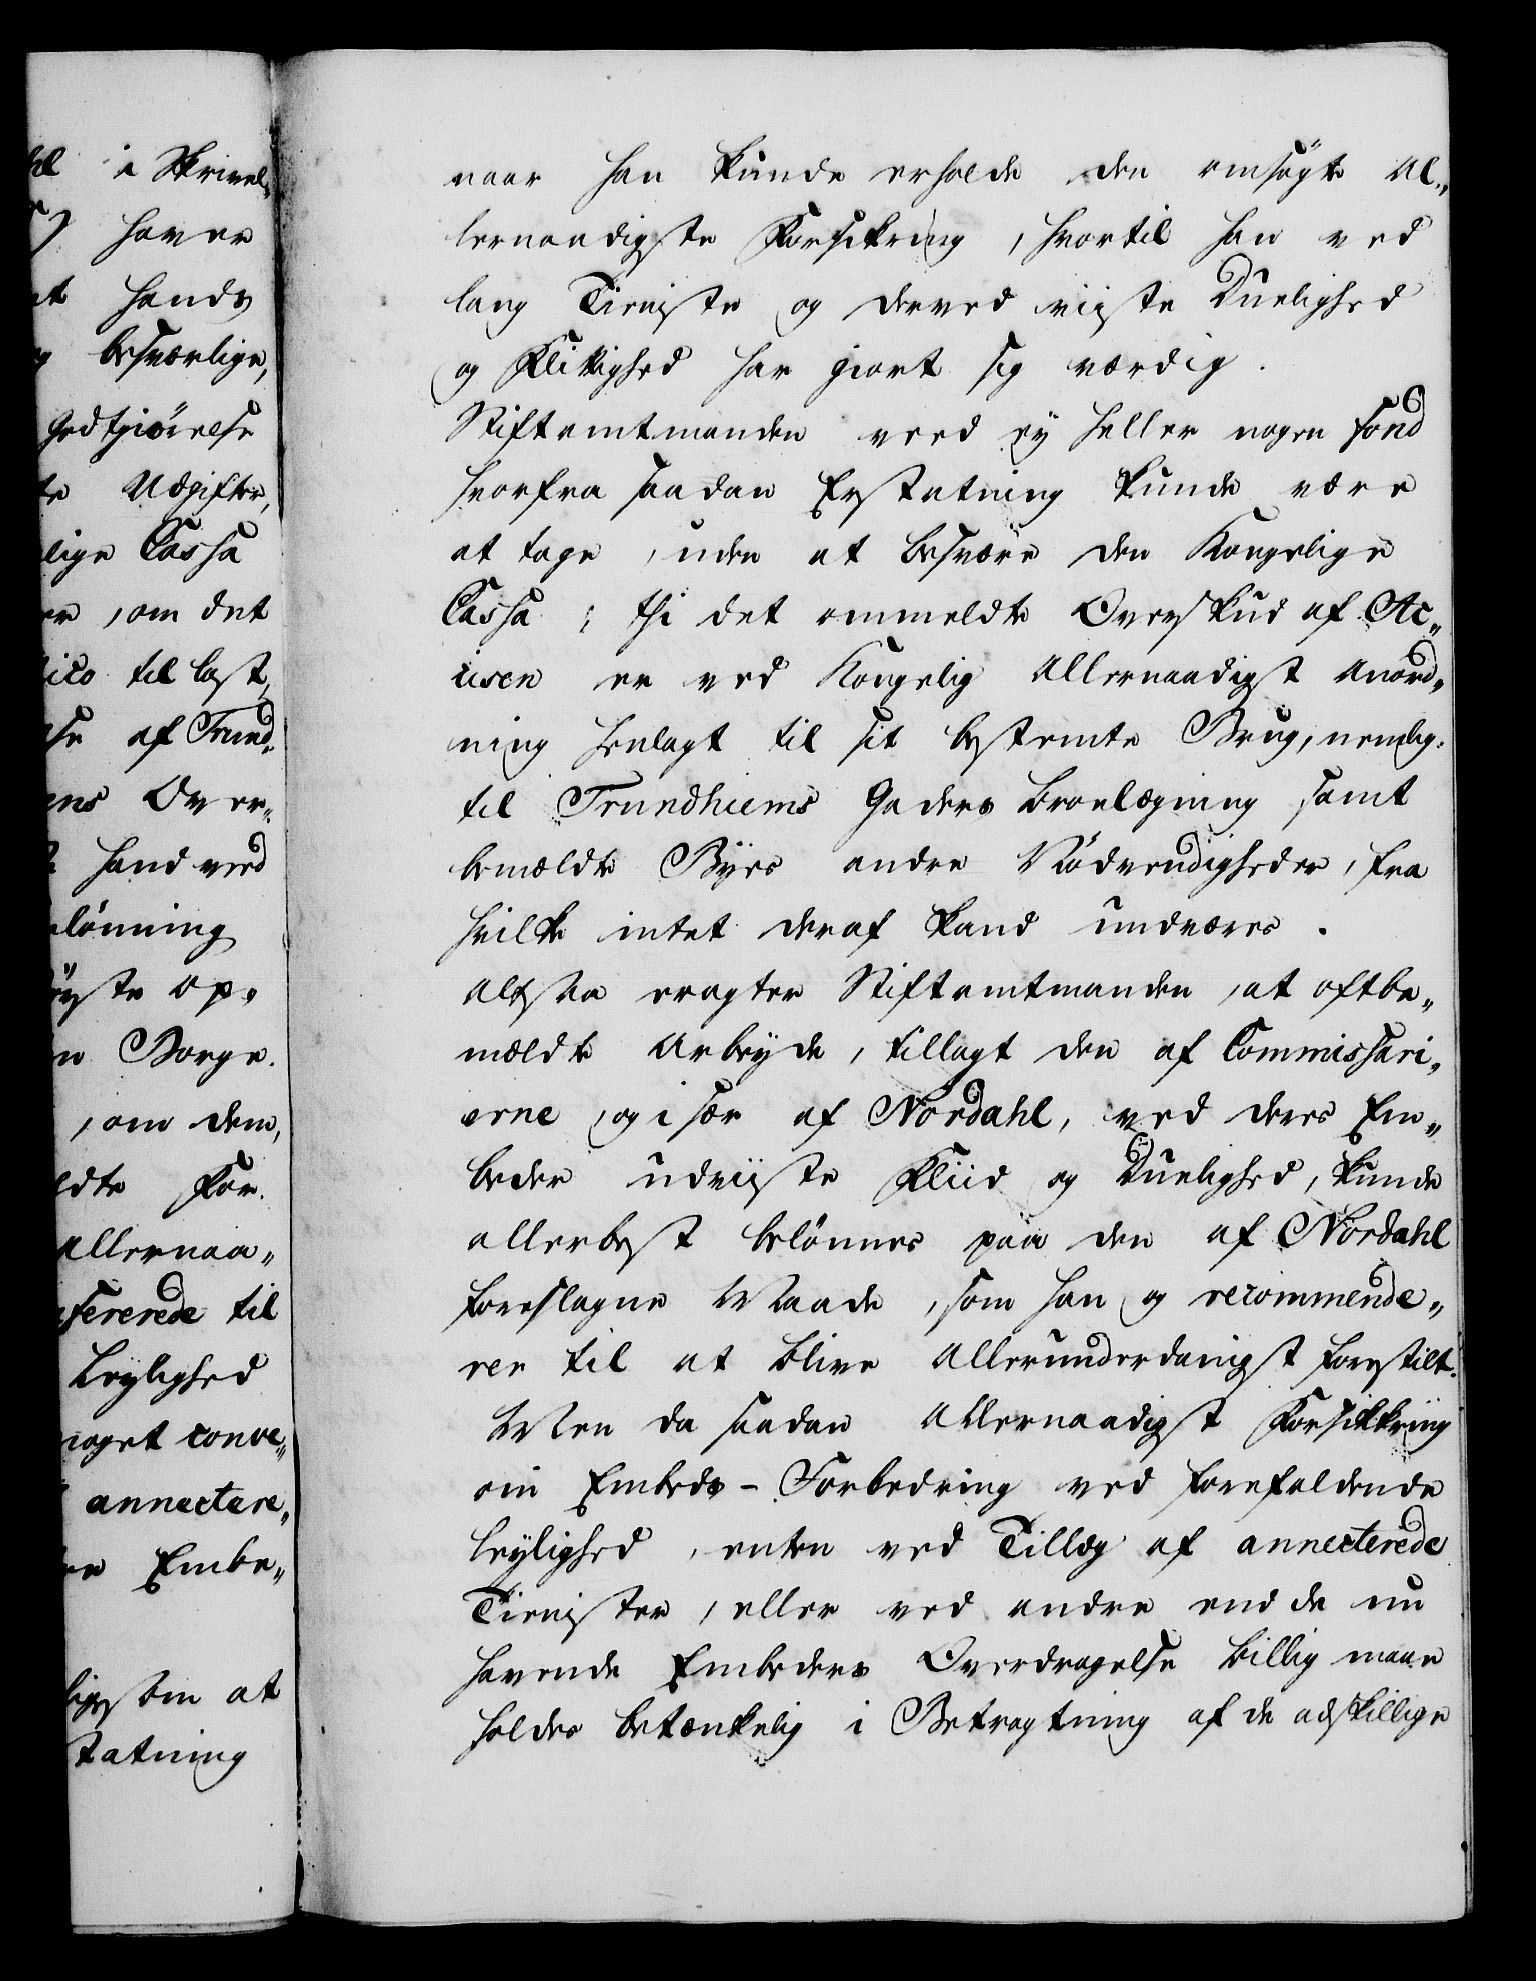 hl i Skrivel,
haver
at hands
g besværlige,
Godtgiörelse
te Udgifter,
lige Cassa
er, om det
ico til last,
se af Trund„
ens Over„
hand veed
elönning
öyste op„
n Borge.
, om dem,
ldte For.
Allernaa„
fererede til
Leylighed
noget conve„
annectere„
re Embe„
ligesom at
statning
naar han kunde erholde den omsögte Al„
lernaadigste Forsikring, hvortil han ved
lang Tieniste og derved viiste Duelighed
og Flittighed har giort sig værdig.
Stiftamtmanden veed ey heller nogen Fond
hvorfra saadan Erstatning kunde være
at tage, uden at besvære den Kongelige
Cassa; thi det ommeldte Overskud af Ac„
cisen er ved Kongelig Allernaadigst Anord„
ning henlagt til sit bestemte Brug, nemlig.
til Trundhiems Gaders Broelægning samt
bemældte Byes andre Nödvendigheder, fra
hvilke intet deraf kand undværes.
Altsaa eragter Stiftamtmanden, at oftbe„
mældte Arbeyde, tillagt den af Commissari„
erne, og i sær af Nordahl, ved deres Em„
beder udviiste Fliid og Duelighed, kunde
allerbest belönnes paa den af Nordahl
foreslagne Maade, som han og recommende„
rer til at blive Allerunderdanigst forestilt.
Men da saadan Allernaadigst Forsikkring
om Embeds-Forbedring ved forefaldende
leylighed, enten ved Tillæg af annecterede
Tienister, eller ved andre end de nu
havende Embeders Overdragelse billig maae
holdes betænkelig i Betragtning af de adskillige